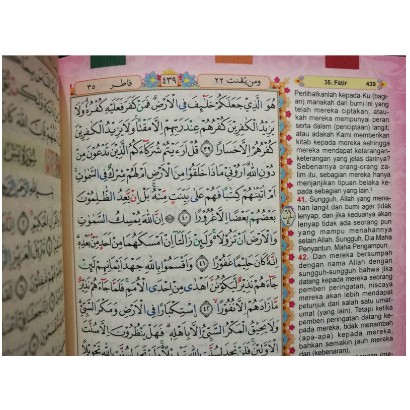 ومن يقنت ٢٢
٤٣٩
فاطر ٣٥
هُوَ الَّذِيْ جَعَلَكُمْ خَلٰۤىِٕفَ فِى الْاَرْضِۗ فَمَنْ كَفَرَ فَعَلَيْهِ كُفْرُهٗۗ وَلَا
يَزِيْدُ الْكٰفِرِيْنَ كُفْرُهُمْ عِنْدَ رَبِّهِمْ اِلَّا مَقْتًا ۚوَلَا يَزِيْدُ الْكٰفِرِيْنَ
كُفْرُهُمْ اِلَّا خَسَارًا ٣٩ قُلْ اَرَءَيْتُمْ شُرَكَاۤءَكُمُ الَّذِيْنَ تَدْعُوْنَ مِنْ
دُوْنِ اللّٰهِ ۗاَرُوْنِيْ مَاذَا خَلَقُوْا مِنَ الْاَرْضِ اَمْ لَهُمْ شِرْكٌ فِى السَّمٰوٰتِۚ
اَمْ اٰتَيْنٰهُمْ كِتٰبًا فَهُمْ عَلٰى بَيِّنَتٍ مِّنْهُۚ بَلْ اِنْ يَّعِدُ الظّٰلِمُوْنَ
بَعْضُهُمْ بَعْضًا اِلَّا غُرُوْرًا ٤٠ اِنَّ اللّٰهَ يُمْسِكُ السَّمٰوٰتِ
وَالْاَرْضَ اَنْ تَزُوْلَا ەۚ وَلَىِٕنْ زَالَتَآ اِنْ اَمْسَكَهُمَا مِنْ اَحَدٍ مِّنْۢ بَعْدِهٖ ۗ
اِنَّهٗ كَانَ حَلِيْمًا غَفُوْرًا ٤١ وَاَقْسَمُوْا بِاللّٰهِ جَهْدَ اَيْمَانِهِمْ لَىِٕنْ
جَاۤءَهُمْ نَذِيْرٌ لَّيَكُوْنُنَّ اَهْدٰى مِنْ اِحْدَى الْاُمَمِۚ فَلَمَّا جَاۤءَهُمْ نَذِيْرٌ
مَّا زَادَهُمْ اِلَّا نُفُوْرًا ٤٢ اسْتِكْبَارًا فِى الْاَرْضِ وَمَكْرَ السَّيِّئِۗ
وَلَا يَحِيْقُ الْمَكْرُ السَّيِّئُ اِلَّا بِاَهْلِهٖ ۗفَهَلْ يَنْظُرُوْنَ اِلَّا سُنَّتَ
الْاَوَّلِيْنَۚ فَلَنْ تَجِدَ لِسُنَّتِ اللّٰهِ تَبْدِيْلًا ەۚ وَلَنْ تَجِدَ لِسُنَّتِ اللّٰهِ تَحْوِيْلًا
35. Fatir 439
Perlihatkanlah kepada-Ku (bagi-
an) manakah dari bumi ini yang
telah mereka ciptakan, atau-
kah mereka mempunyai peran
serta dalam (penciptaan) langit;
atau adakah Kami memberikan
kitab kepada mereka sehingga
mereka mendapat keterangan-
keterangan yang jelas darinya?
Sebenarnya orang-orang za-
lim itu, sebagian mereka hanya
menjanjikan tipuan belaka ke-
pada sebagian yang lain."
41. Sungguh, Allah yang mena-
han langit dan bumi agar tidak
lenyap; dan jika keduanya akan
lenyap tidak ada seorang pun
yang mampu menahannya
selain Allah. Sungguh, Dia Maha
Penyantun, Maha Pengampun.
42. Dan mereka bersumpah
dengan nama Allah dengan
sungguh-sungguh bahwa jika
datang kepada mereka seorang
pemberi peringatan, niscaya
mereka akan lebih mendapat
petunjuk dari salah satu umat-
umat (yang lain). Tetapi ketika
pemberi peringatan datang ke-
pada mereka, tidak menambah
(apa-apa) kepada mereka,
bahkan semakin jauh mereka
dari (kebenaran).